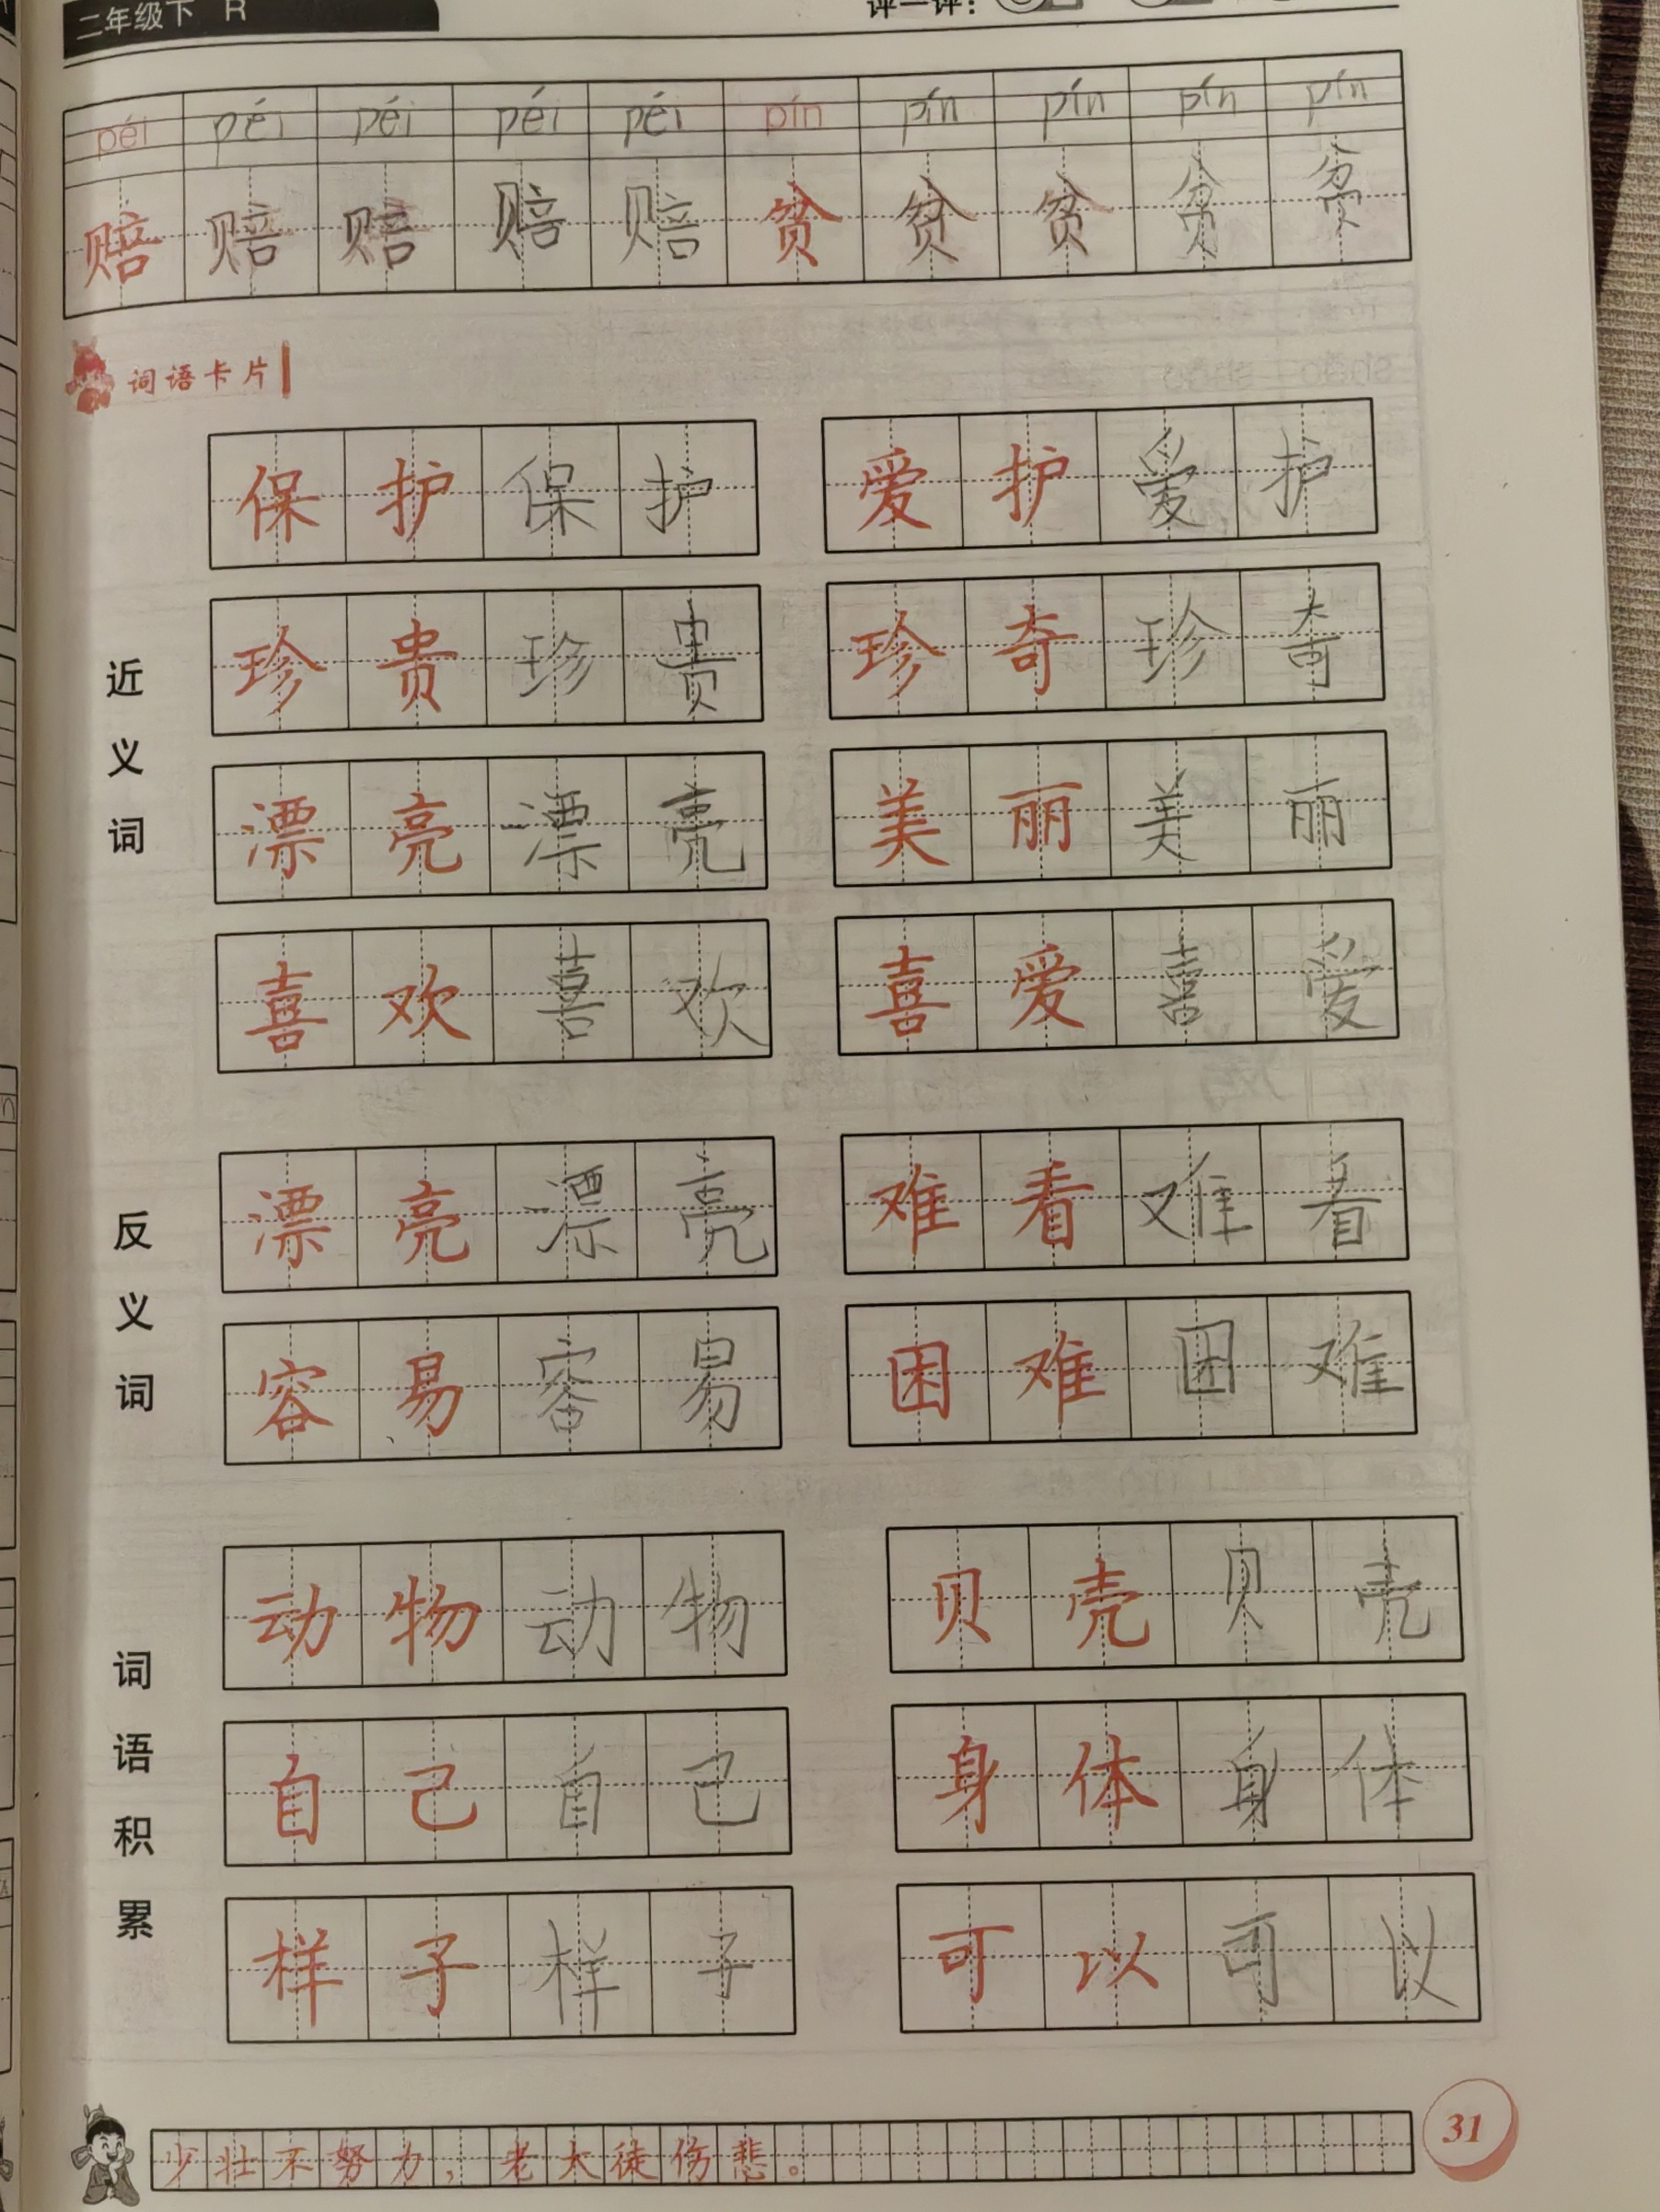 二年级下 R 评一评:
péi péi péi péi péi pín pín pín pín pín
赔 赔 赔 赔 赔 贫 贫 贫 贫 贫
词语卡片
近义词
保护保护 爱护爱护
珍贵珍贵 珍奇珍奇
漂亮漂亮 美丽美丽
喜欢喜欢 喜爱喜爱
反义词
漂亮漂亮 难看难看
容易容易 困难困难
词语积累
动物动物 贝壳贝壳
自己自己 身体身体
样子样子 可以可以
少壮不努力，老大徒伤悲。
31